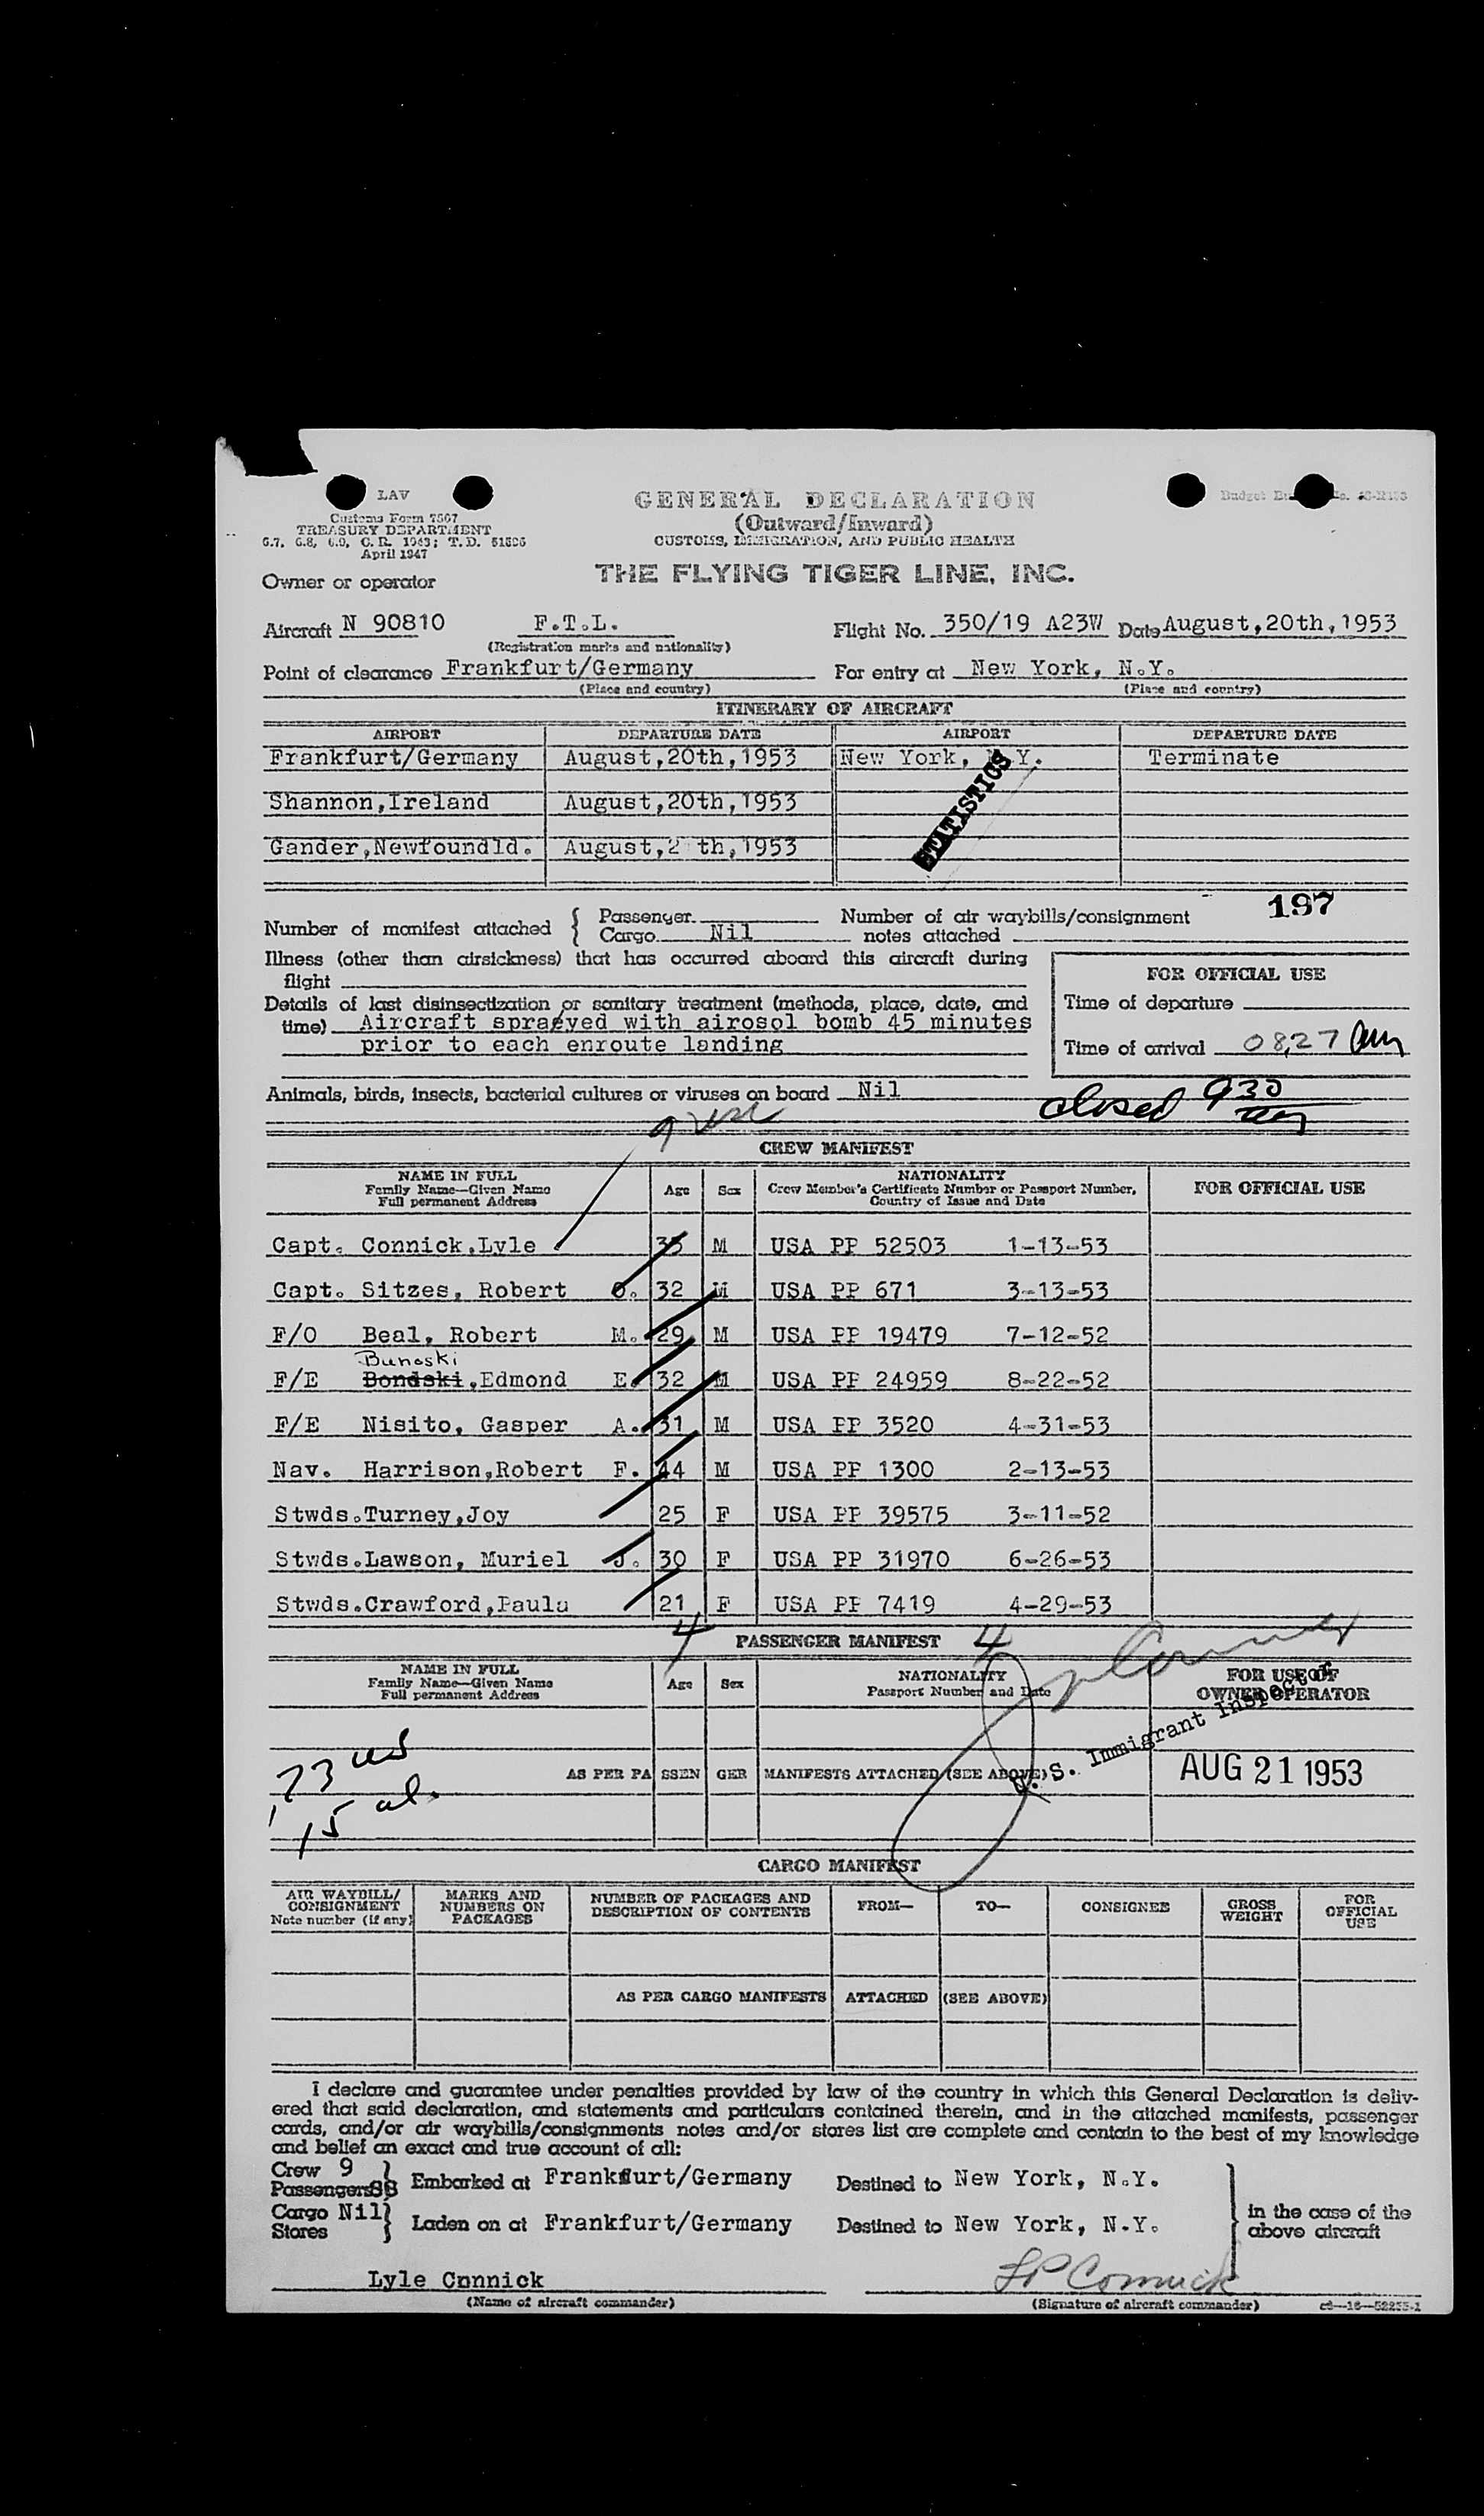 LAV
GENERAL DECLARATION
Customs Form 7507
(Outward/Inward)
TREASURY DEPARTMENT
CUSTOMS, IMMIGRATION, AND PUBLIC HEALTH
April 1947
THE FLYING TIGER LINE, INC.
Owner or operator
Aircraft N 90810 F.T.L. Flight No. 350/19 A23W Date August,20th,1953
(Registration marks and nationality)
Point of clearance Frankfurt/Germany For entry at New York, N.Y.
(Place and country) (Place and country)
ITINERARY OF AIRCRAFT
AIRPORT DEPARTURE DATE AIRPORT DEPARTURE DATE
Frankfurt/Germany August,20th,1953 New York, N.Y. Terminate
STATISTICS
Shannon,Ireland August,20th,1953
Gander,Newfoundld. August,2 th,1953
197
Number of manifest attached { Passenger Number of air waybills/consignment
Cargo Nil notes attached
Illness (other than airsickness) that has occurred aboard this aircraft during
flight
FOR OFFICIAL USE
Details of last disinsectization or sanitary treatment (methods, place, date, and
Time of departure
time) Aircraft spraeyed with airosol bomb 45 minutes
prior to each enroute landing
Time of arrival 0827 am
Animals, birds, insects, bacterial cultures or viruses on board Nil
closed 930
CREW MANIFEST
NAME IN FULL
Family Name—Given Name
Full permanent Address
Age Sex
NATIONALITY
Crew Member's Certificate Number or Passport Number,
Country of Issue and Date
FOR OFFICIAL USE
Capt. Connick,Lyle 33 M USA PP 52503 1-13-53
Capt. Sitzes, Robert O. 32 M USA PP 671 3-13-53
F/O Beal, Robert M. 29 M USA PP 19479 7-12-52
Bunoski
F/E Bondski,Edmond E. 32 M USA PP 24959 8-22-52
F/E Nisito, Gasper A. 31 M USA PP 3520 4-31-53
Nav. Harrison,Robert F. 44 M USA PP 1300 2-13-53
Stwds.Turney,Joy 25 F USA PP 39575 3-11-52
Stwds.Lawson, Muriel J. 30 F USA PP 31970 6-26-53
Stwds.Crawford,Paula 21 F USA PP 7419 4-29-53
4 PASSENGER MANIFEST 4
NAME IN FULL
Family Name—Given Name
Full permanent Address
Age Sex
NATIONALITY
Passport Number and Date
FOR USE OF
OWNER OPERATOR
U. S. Immigrant Inspector
73 us
AS PER PASSENGER MANIFESTS ATTACHED (SEE ABOVE)
AUG 21 1953
15 al.
CARGO MANIFEST
AIR WAYBILL/
CONSIGNMENT
Note number (if any)
MARKS AND
NUMBERS ON
PACKAGES
NUMBER OF PACKAGES AND
DESCRIPTION OF CONTENTS
FROM— TO— CONSIGNEE
GROSS
WEIGHT
FOR
OFFICIAL
USE
AS PER CARGO MANIFESTS ATTACHED (SEE ABOVE)
I declare and guarantee under penalties provided by law of the country in which this General Declaration is deliv-
ered that said declaration, and statements and particulars contained therein, and in the attached manifests, passenger
cards, and/or air waybills/consignments notes and/or stores list are complete and contain to the best of my knowledge
and belief an exact and true account of all:
Crew 9
Passengers 88 } Embarked at Frankfurt/Germany Destined to New York, N.Y.
Cargo Nil
Stores } Laden on at Frankfurt/Germany Destined to New York, N.Y.
in the case of the
above aircraft
Lyle Connick LP Connick
(Name of aircraft commander) (Signature of aircraft commander)